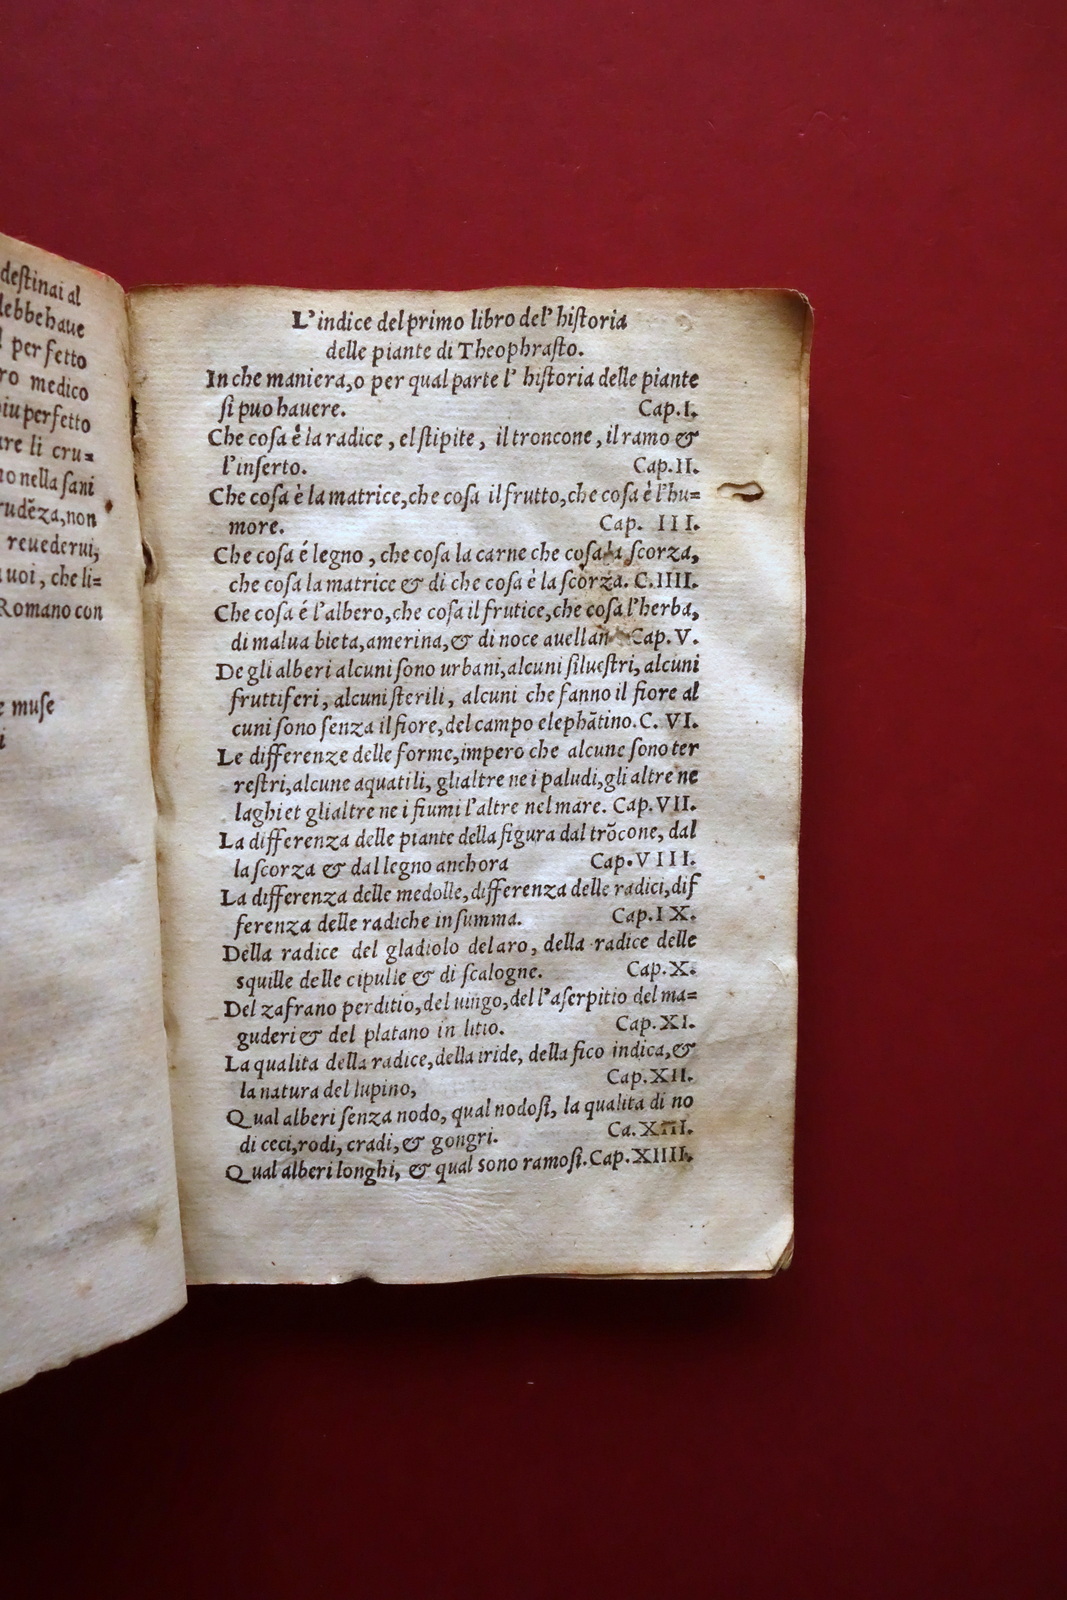 destinai al
debbe haue
perfetto
ro medico
piu perfetto
are li cru=
no nella sani
rudēza, non
reuederui,
uoi, che li=
Romano con
e muse
i
L'indice del primo libro del' historia
delle piante di Theophrasto.
In che maniera, o per qual parte l' historia delle piante
si puo hauere. Cap. I.
Che cosa è la radice, el stipite, il troncone, il ramo &
l'inserto. Cap. II.
Che cosa è la matrice, che cosa il frutto, che cosa è l'hu=
more. Cap. III.
Che cosa é legno, che cosa la carne che cosa la scorza,
che cosa la matrice & di che cosa è la scorza. C. IIII.
Che cosa é l'albero, che cosa il frutice, che cosa l'herba,
di malua bieta, amerina, & di noce auellan Cap. V.
De gli alberi alcuni sono urbani, alcuni siluestri, alcuni
fruttiferi, alcuni sterili, alcuni che fanno il fiore al
cuni sono senza il fiore, del campo elephātino. C. VI.
Le differenze delle forme, impero che alcune sono ter
restri, alcune aquatili, gli altre ne i paludi, gli altre ne
laghi et gli altre ne i fiumi l'altre nel mare. Cap. VII.
La differenza delle piante della figura dal trōcone, dal
la scorza & dal legno anchora Cap. VIII.
La differenza delle medolle, differenza delle radici, dif
ferenza delle radiche in summa. Cap. IX.
Della radice del gladiolo del aro, della radice delle
squille delle cipulle & di scalogne. Cap. X.
Del zafrano perditio, del uingo, del l'aserpitio del ma=
guderi & del platano in litio. Cap. XI.
La qualita della radice, della iride, della fico indica, &
la natura del lupino, Cap. XII.
Qual alberi senza nodo, qual nodosi, la qualita di no
di ceci, rodi, cradi, & gongri. Ca. XIII.
Qual alberi longhi, & qual sono ramosi. Cap. XIIII.